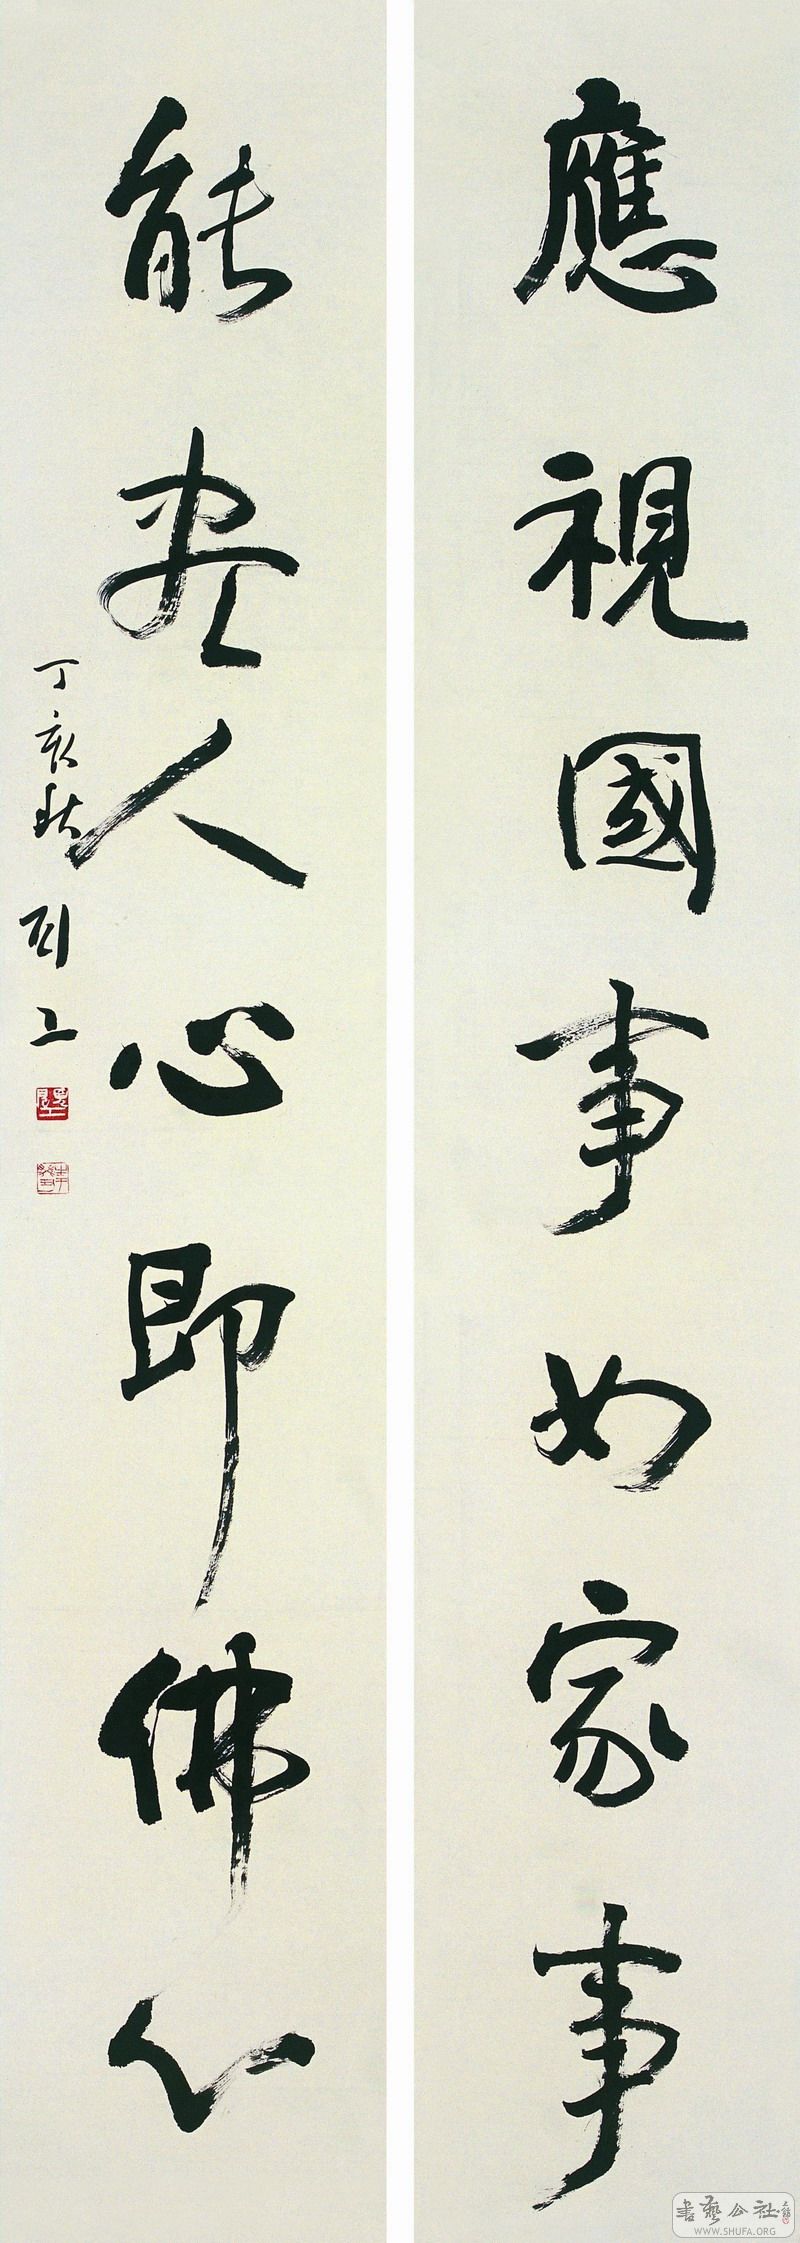 應視國事如家事
能盡人心即佛心
丁亥秋
書藝公社
WWW.SHUFA.ORG